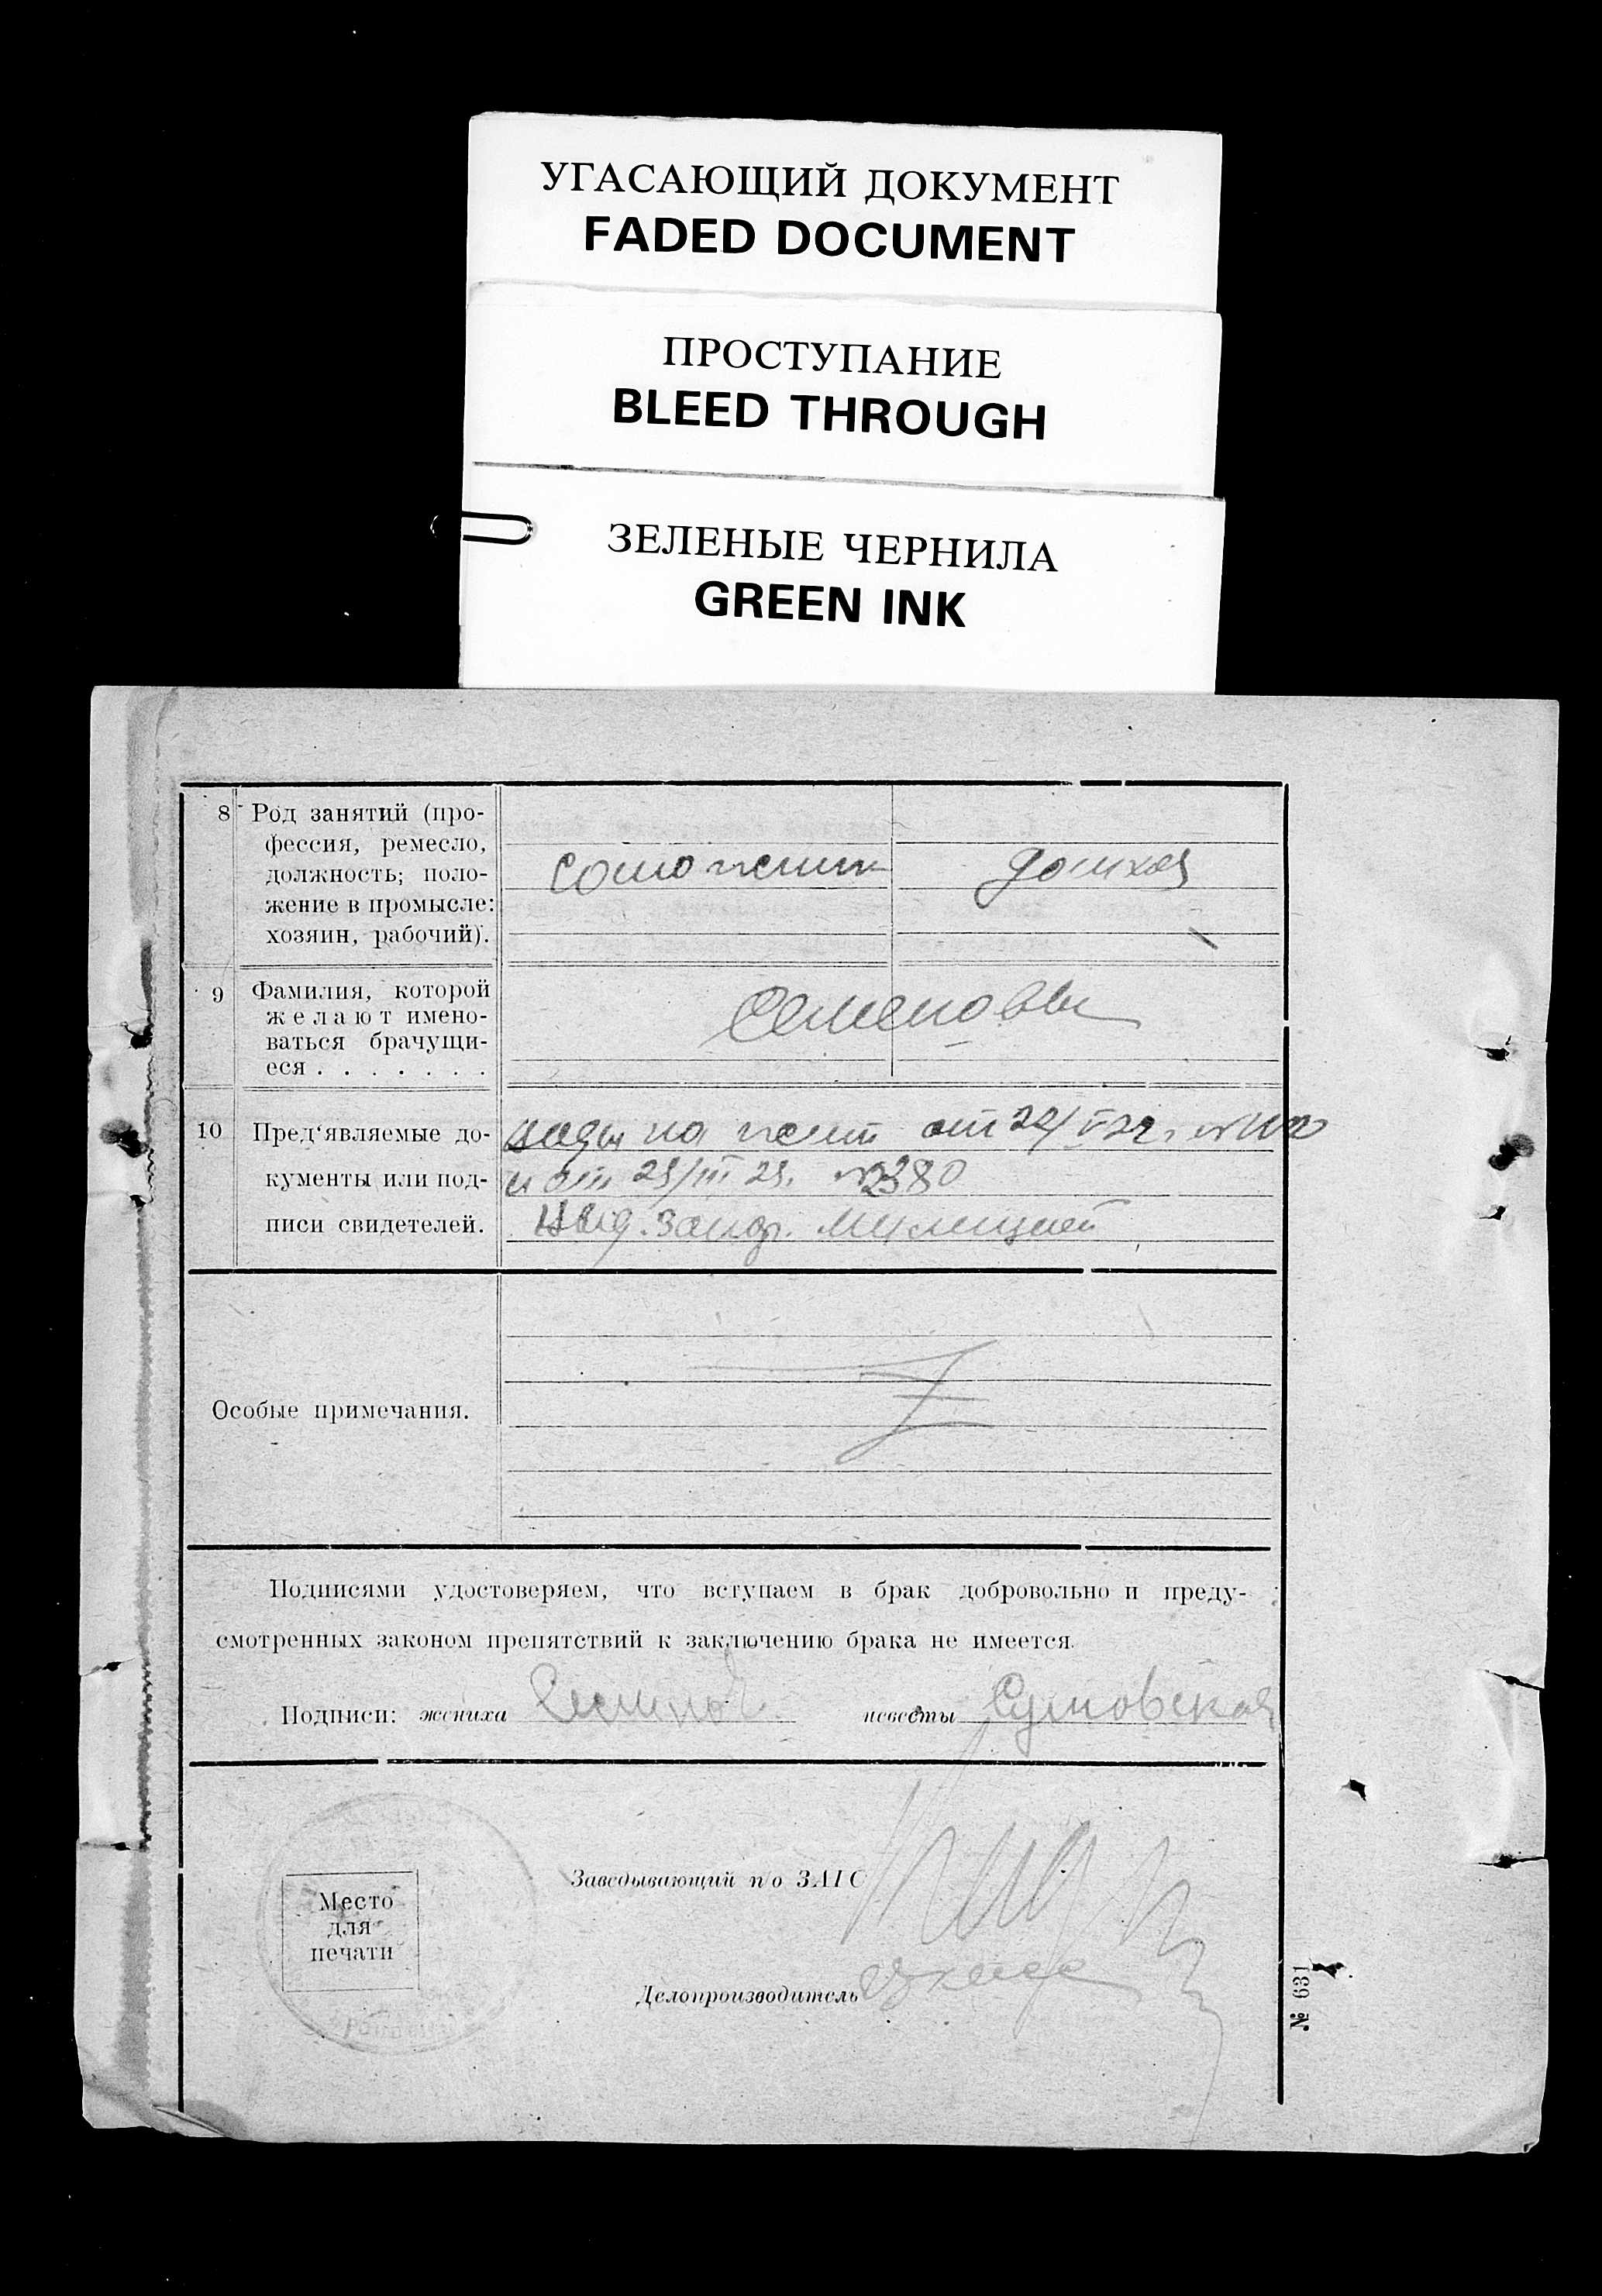 УГАСАЮЩИЙ ДОКУМЕНТ
FADED DOCUMENT
ПРОСТУПАНИЕ
BLEED THROUGH
ЗЕЛЕНЫЕ ЧЕРНИЛА
GREEN INK
8 Род занятий (про-
фессия, ремесло,
должность; поло-
жение в промысле:
хозяин, рабочий).
домхоз
9 Фамилия, которой
желают имено-
ваться брачущи-
еся . . . . . . .
Семеновы
10 Пред'являемые до-
кументы или под-
писи свидетелей.
на жит от
и от 23/III 23. № 2380
выд. Милицией
Особые примечания.
Подписями удостоверяем, что вступаем в брак добровольно и преду-
смотренных законом препятствий к заключению брака не имеется.
Подписи: жениха Семенов невесты
Заведывающий п/о ЗАГС
Место
для
печати
Делопроизводитель
№ 631